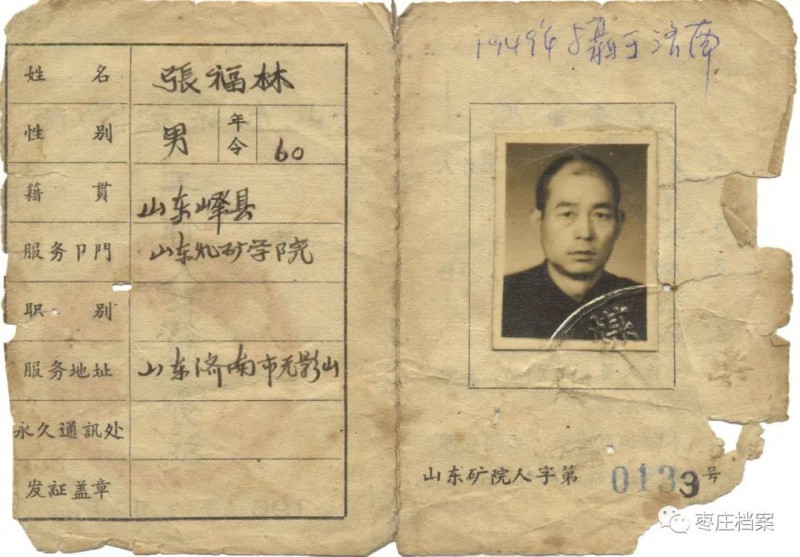 姓名 張福林
性别 男 年令 60
籍貫 山东峄县
服务卩門 山东矿学院
职别
服务地址 山东济南市无影山
永久通訊处
发証盖章
1949年 于济南
煤
山东矿院人字第 0133 号
枣庄档案